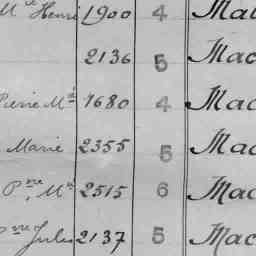 Mel Henri 1900 4 Mac
2136 5 Mac
Pierre Mie 4680 4 Mac
Marie 2355 5 Mac
Pre, Mie 2515 6 Mac
Pre Jules 2137 5 Mac